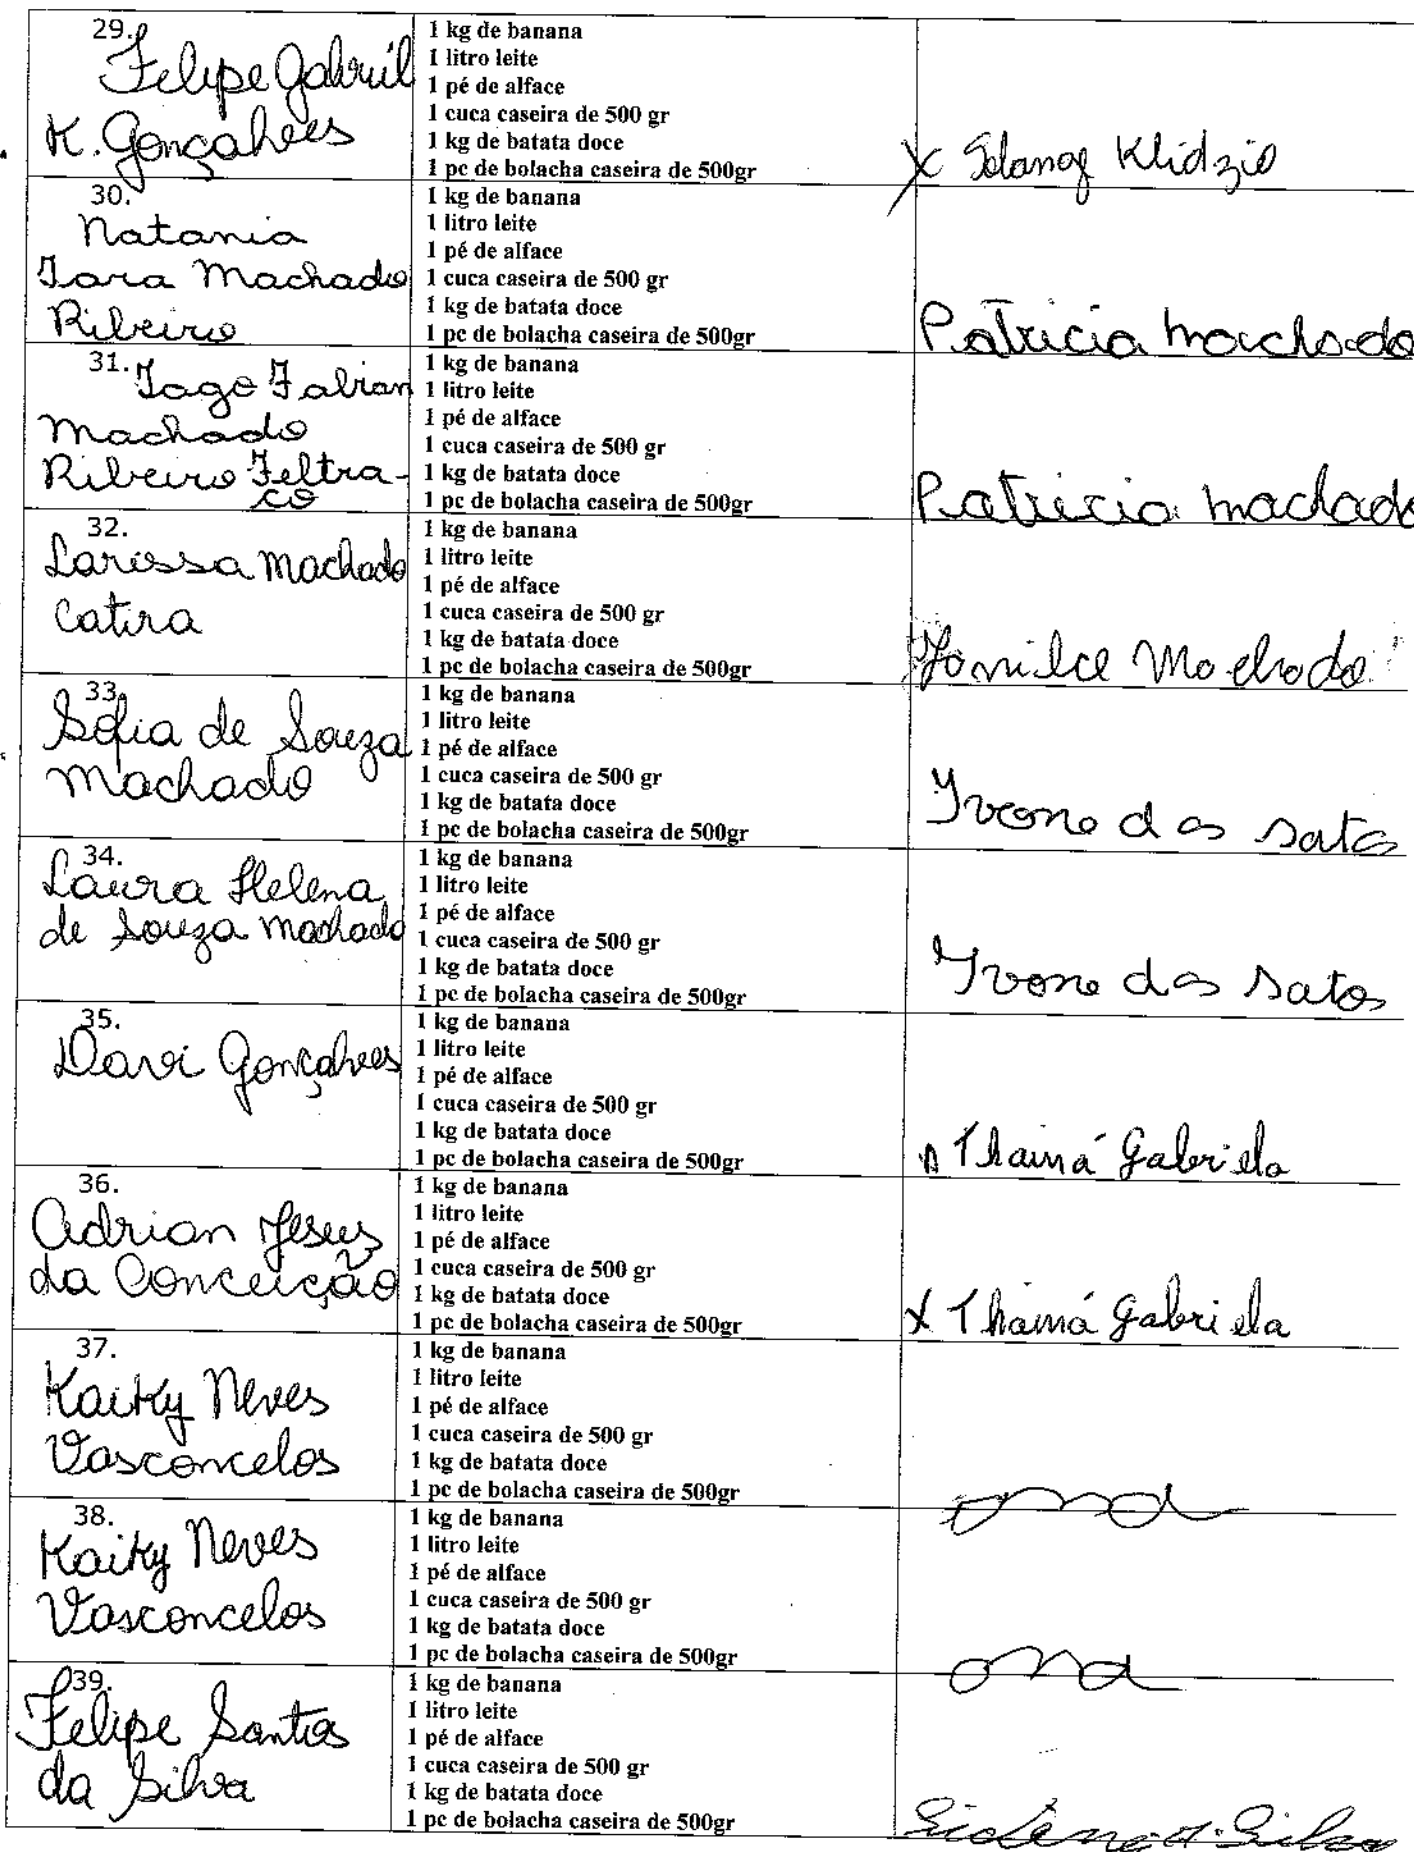 29.
Felipe Gabriel
K. Gonçalves
1 kg de banana
1 litro leite
1 pé de alface
1 cuca caseira de 500 gr
1 kg de batata doce
1 pc de bolacha caseira de 500gr
X Klidzio
30.
Natania
Iara Machado
Ribeiro
1 kg de banana
1 litro leite
1 pé de alface
1 cuca caseira de 500 gr
1 kg de batata doce
1 pc de bolacha caseira de 500gr
Patricia Machado
31. Iago Fabian
Machado
Ribeiro Feltra-
co
1 kg de banana
1 litro leite
1 pé de alface
1 cuca caseira de 500 gr
1 kg de batata doce
1 pc de bolacha caseira de 500gr
Patricia Machado
32.
Larissa Machado
Catira
1 kg de banana
1 litro leite
1 pé de alface
1 cuca caseira de 500 gr
1 kg de batata doce
1 pc de bolacha caseira de 500gr
Machado
33.
Sofia de Souza
Machado
1 kg de banana
1 litro leite
1 pé de alface
1 cuca caseira de 500 gr
1 kg de batata doce
1 pc de bolacha caseira de 500gr
Yvone dos satos
34.
Laura Helena
de Souza Machado
1 kg de banana
1 litro leite
1 pé de alface
1 cuca caseira de 500 gr
1 kg de batata doce
1 pc de bolacha caseira de 500gr
Yvone dos satos
35.
Davi Gonçalves
1 kg de banana
1 litro leite
1 pé de alface
1 cuca caseira de 500 gr
1 kg de batata doce
1 pc de bolacha caseira de 500gr
Thainá Gabriela
36.
Adrian Jesus
da Conceição
1 kg de banana
1 litro leite
1 pé de alface
1 cuca caseira de 500 gr
1 kg de batata doce
1 pc de bolacha caseira de 500gr
X Thainá Gabriela
37.
Kaiky Neves
Vasconcelos
1 kg de banana
1 litro leite
1 pé de alface
1 cuca caseira de 500 gr
1 kg de batata doce
1 pc de bolacha caseira de 500gr
38.
Kaiky Neves
Vasconcelos
1 kg de banana
1 litro leite
1 pé de alface
1 cuca caseira de 500 gr
1 kg de batata doce
1 pc de bolacha caseira de 500gr
39.
Felipe Santos
da Silva
1 kg de banana
1 litro leite
1 pé de alface
1 cuca caseira de 500 gr
1 kg de batata doce
1 pc de bolacha caseira de 500gr
Silva